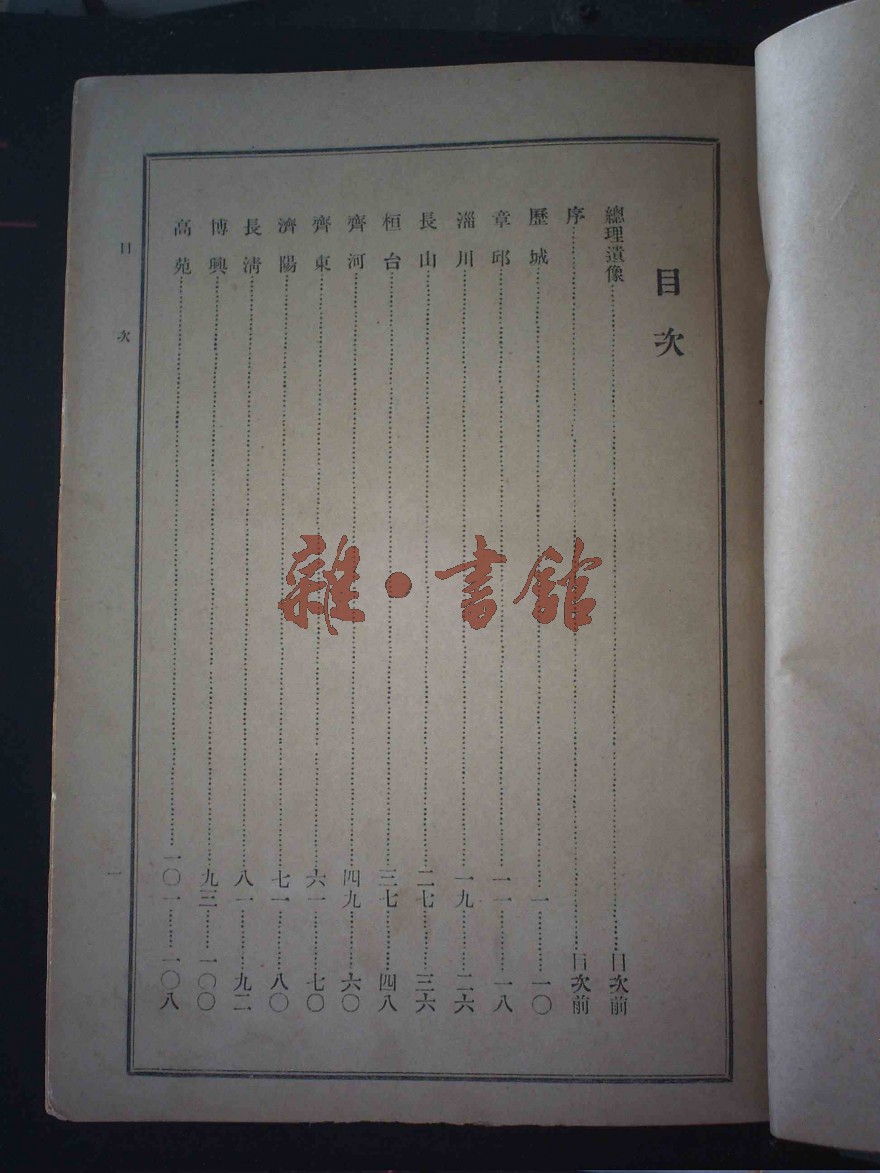 目次
總理遺像……目次前
序……目次前
歷城……一……一〇
章邱……一一……一八
淄川……一九……二六
長山……二七……三六
桓台……三七……四八
齊河……四九……六〇
齊東……六一……七〇
濟陽……七一……八〇
長淸……八一……九二
博興……九三……一〇〇
高苑……一〇一……一〇八
目次
一
雜·書館